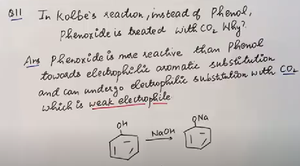 Q11 In Kolbe's reaction, instead of Phenol,
Phenoxide is treated with CO2 Why?
Ans Phenoxide is more reactive than Phenol
towards electrophilic aromatic substitution
and can undergo electrophilic substitution with CO2
which is weak electrophile
OH
NaOH
ONa